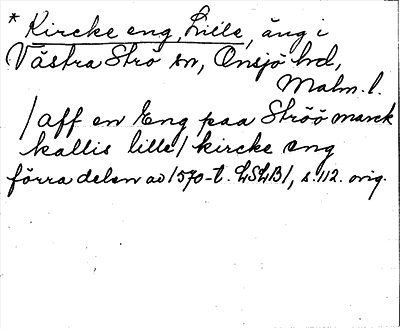 * Kircke eng, Lille, äng i
Västra Strö sn, Onsjö hd,
Malm. l.
/aff en Eng paa Ströö marck
kallis lille/ kircke eng
förra delen av 1570-t. LSLB 1, s. 112. orig.